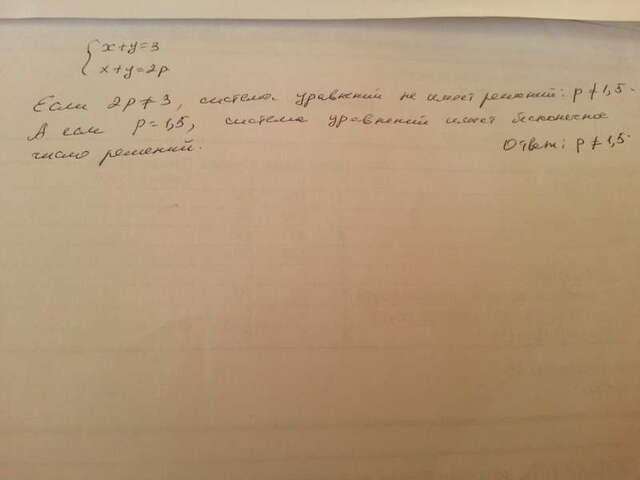 x+y=3
x+y=2p
Если 2p≠3, система уравнений не имеет решений: p≠1,5.
А если p=1,5, система уравнений имеет бесконечное
число решений.
Ответ: p≠1,5